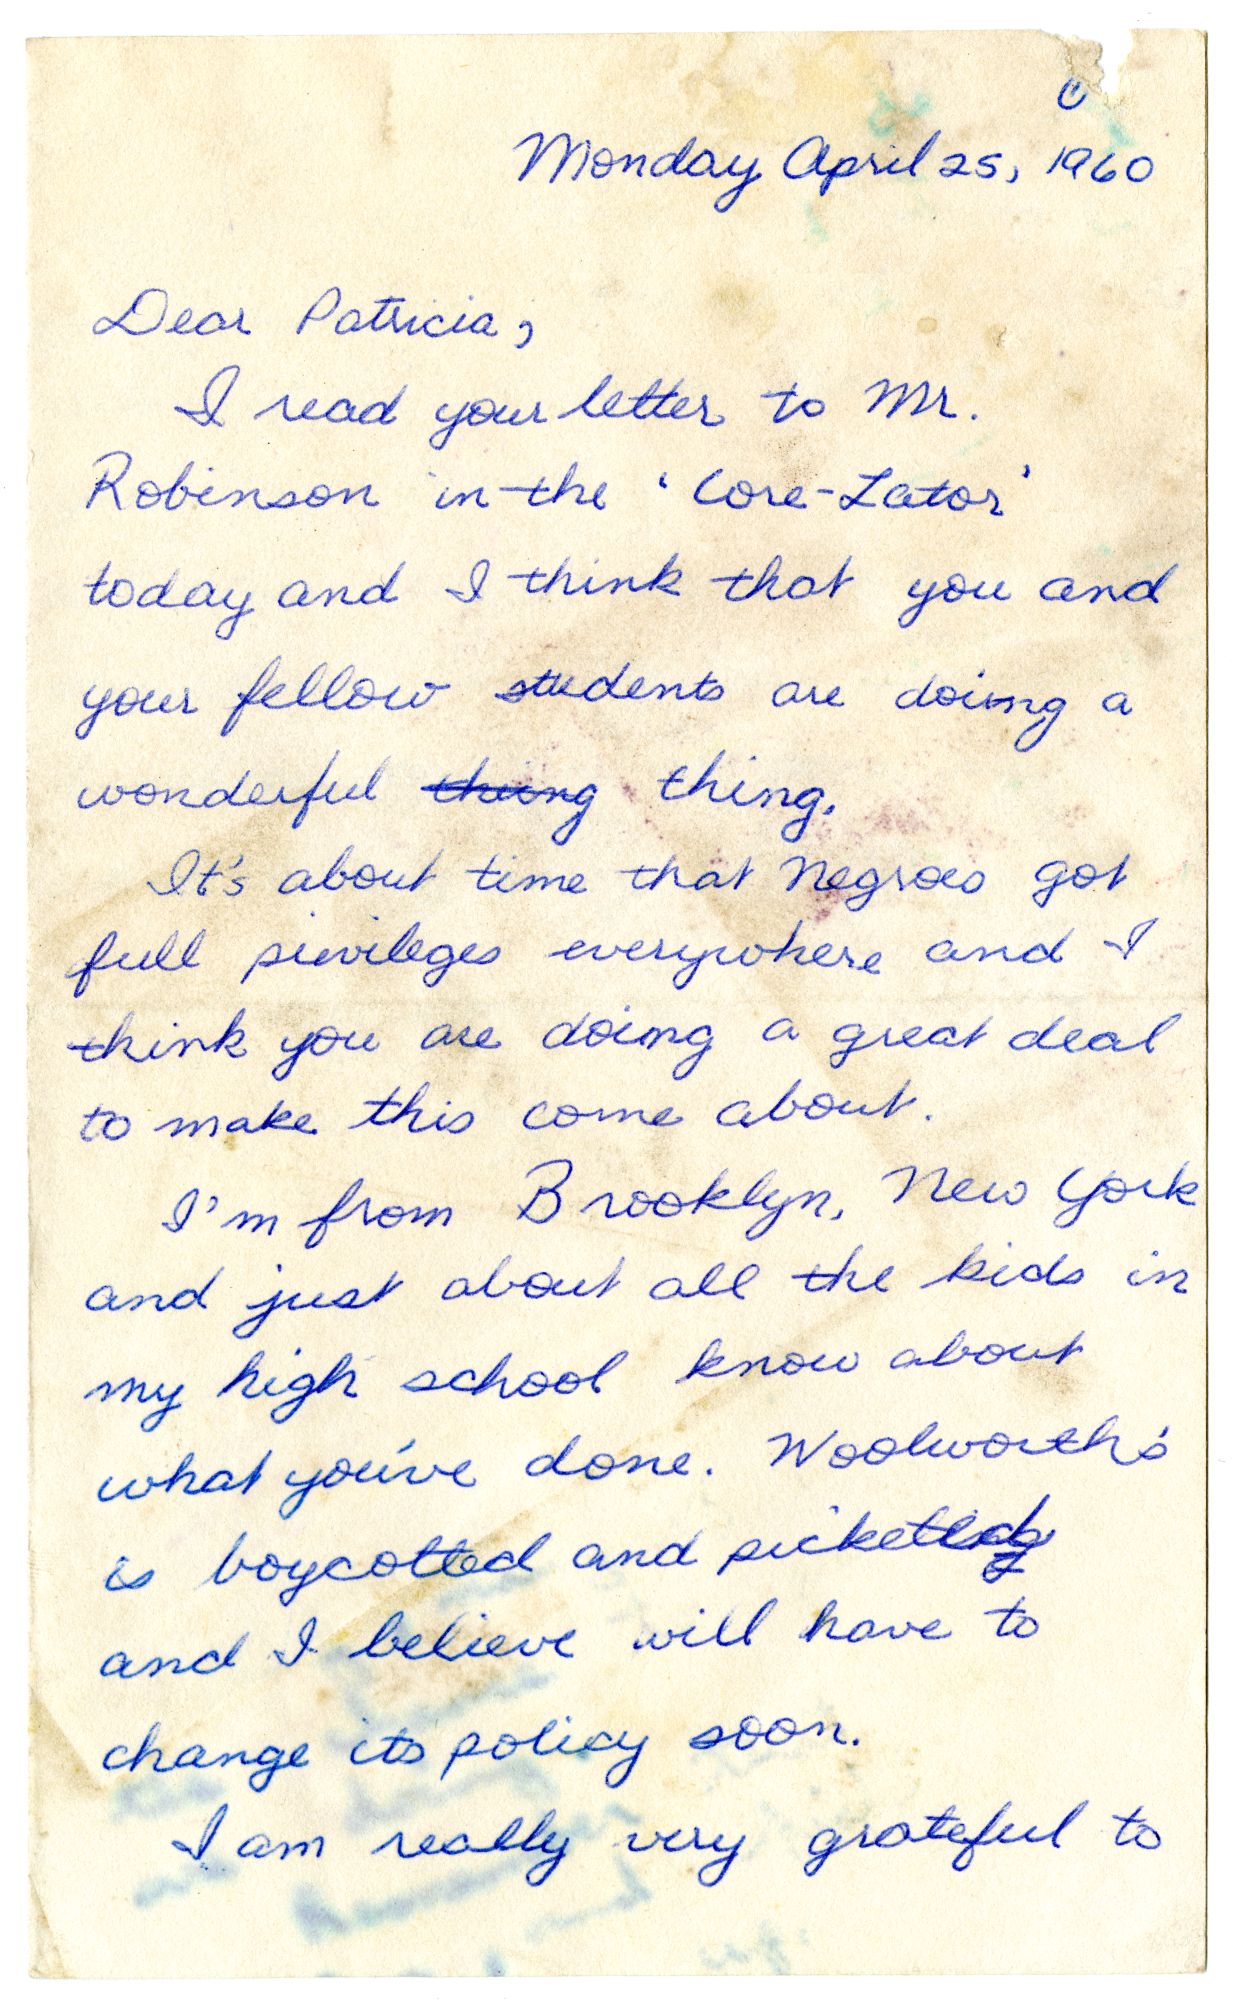 Monday April 25, 1960
Dear Patricia,
I read your letter to Mr.
Robinson in the 'Core-Lator'
today and I think that you and
your fellow students are doimg a
wonderful thing thing.
It's about time that Negroes got
full privileges everywhere and I
think you are doing a great deal
to make this come about.
I'm from Brooklyn, New York
and just about all the kids in
my high school know about
what you've done. Woolworth's
is boycotted and picketed
and I believe will have to
change its policy soon.
I am really very grateful to